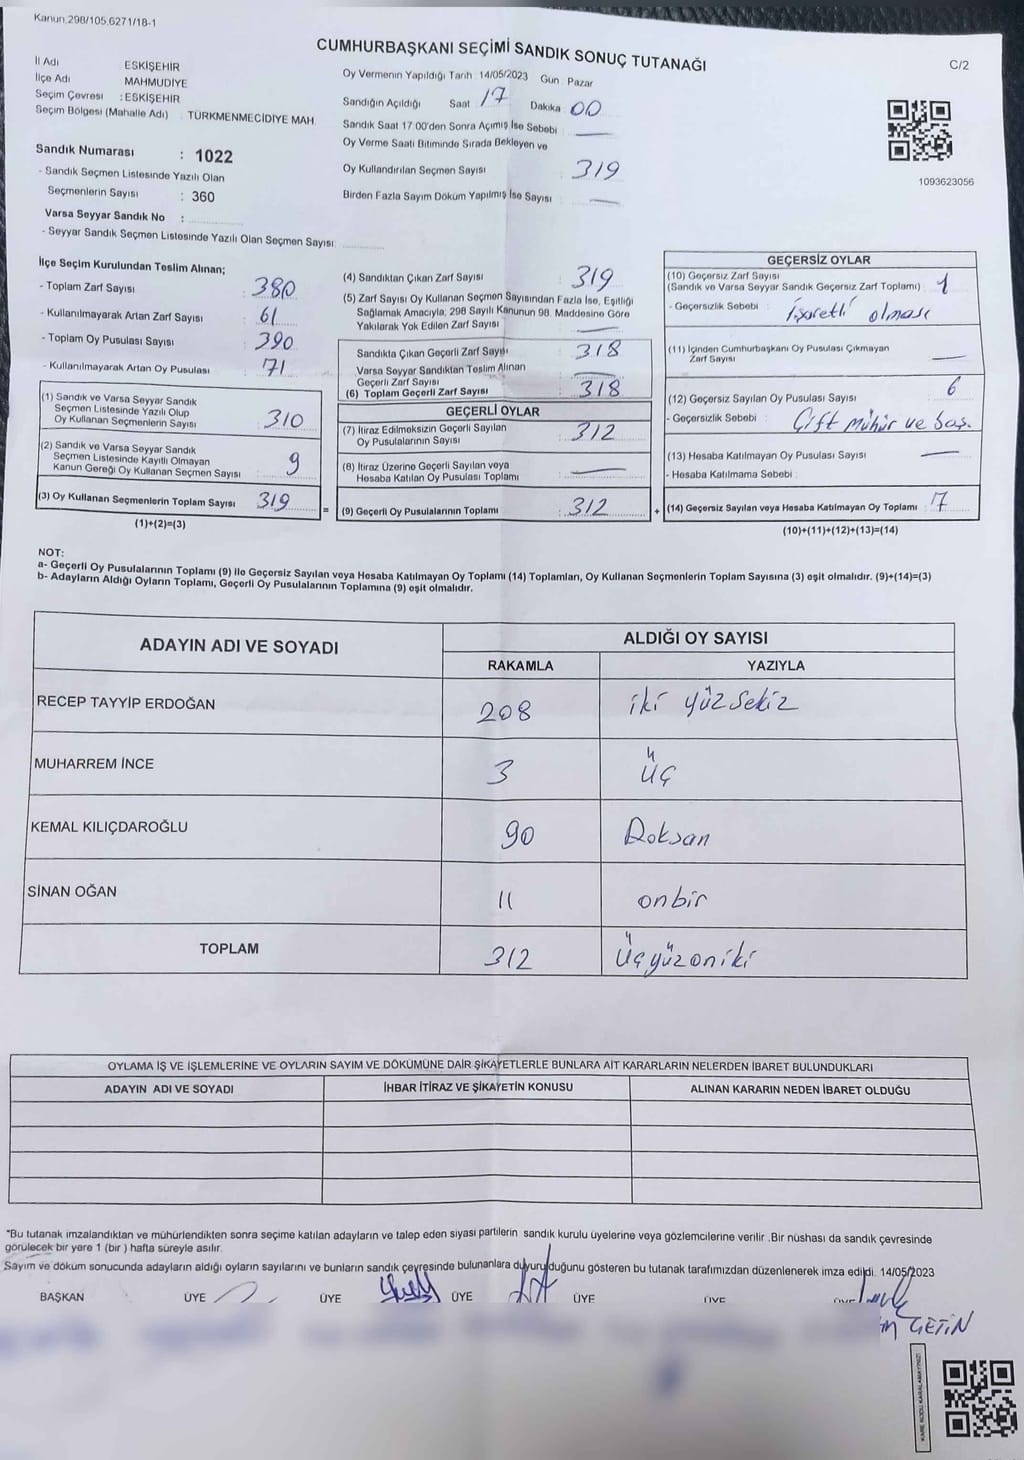 Kanun.298/105,6271/18-1
CUMHURBAŞKANI SEÇİMİ SANDIK SONUÇ TUTANAĞI
C/2
İl Adı ESKİŞEHİR
İlçe Adı MAHMUDİYE
Seçim Çevresi : ESKİŞEHİR
Seçim Bölgesi (Mahalle Adı) : TÜRKMENMECİDİYE MAH.
Oy Vermenin Yapıldığı Tarih 14/05/2023 Gün Pazar
Sandığın Açıldığı Saat 17 Dakika 00
Sandık Saat 17:00'den Sonra Açımış İse Sebebi
Oy Verme Saati Bitiminde Sırada Bekleyen ve
Oy Kullandırılan Seçmen Sayısı 319
Birden Fazla Sayım Döküm Yapılmış İse Sayısı
1093623056
Sandık Numarası : 1022
- Sandık Seçmen Listesinde Yazılı Olan
Seçmenlerin Sayısı : 360
Varsa Seyyar Sandık No :
- Seyyar Sandık Seçmen Listesinde Yazılı Olan Seçmen Sayısı
İlçe Seçim Kurulundan Teslim Alınan;
- Toplam Zarf Sayısı 380
- Kullanılmayarak Artan Zarf Sayısı 61
- Toplam Oy Pusulası Sayısı 390
- Kullanılmayarak Artan Oy Pusulası 71
(1) Sandık ve Varsa Seyyar Sandık
Seçmen Listesinde Yazılı Olup
Oy Kullanan Seçmenlerin Sayısı 310
(2) Sandık ve Varsa Seyyar Sandık
Seçmen Listesinde Kayıtlı Olmayan
Kanun Gereği Oy Kullanan Seçmen Sayısı 9
(3) Oy Kullanan Seçmenlerin Toplam Sayısı 319 =
(1)+(2)=(3)
(4) Sandıktan Çıkan Zarf Sayısı : 319
(5) Zarf Sayısı Oy Kullanan Seçmen Sayısından Fazla İse, Eşitliği
Sağlamak Amacıyla, 298 Sayılı Kanunun 98. Maddesine Göre
Yakılarak Yok Edilen Zarf Sayısı
Sandıkta Çıkan Geçerli Zarf Sayısı 318
Varsa Seyyar Sandıktan Teslim Alınan
Geçerli Zarf Sayısı
(6) Toplam Geçerli Zarf Sayısı : 318
GEÇERLİ OYLAR
(7) İtiraz Edilmeksizin Geçerli Sayılan
Oy Pusulalarının Sayısı : 312
(8) İtiraz Üzerine Geçerli Sayılan veya
Hesaba Katılan Oy Pusulası Toplamı
(9) Geçerli Oy Pusulalarının Toplamı : 312 +
GEÇERSİZ OYLAR
(10) Geçersiz Zarf Sayısı
(Sandık ve Varsa Seyyar Sandık Geçersiz Zarf Toplamı) : 1
- Geçersizlik Sebebi : İşaretli olması
(11) İçinden Cumhurbaşkanı Oy Pusulası Çıkmayan
Zarf Sayısı
(12) Geçersiz Sayılan Oy Pusulası Sayısı 6
- Geçersizlik Sebebi : Çift Mühür ve boş.
(13) Hesaba Katılmayan Oy Pusulası Sayısı
- Hesaba Katılmama Sebebi
(14) Geçersiz Sayılan veya Hesaba Katılmayan Oy Toplamı : 7
(10)+(11)+(12)+(13)=(14)
NOT:
a- Geçerli Oy Pusulalarının Toplamı (9) ile Geçersiz Sayılan veya Hesaba Katılmayan Oy Toplamı (14) Toplamları, Oy Kullanan Seçmenlerin Toplam Sayısına (3) eşit olmalıdır. (9)+(14)=(3)
b- Adayların Aldığı Oyların Toplamı, Geçerli Oy Pusulalarının Toplamına (9) eşit olmalıdır.
ADAYIN ADI VE SOYADI ALDIĞI OY SAYISI
RAKAMLA YAZIYLA
RECEP TAYYİP ERDOĞAN 208 iki yüz sekiz
MUHARREM İNCE 3 üç
KEMAL KILIÇDAROĞLU 90 Doksan
SİNAN OĞAN 11 onbir
TOPLAM 312 Üçyüzoniki
OYLAMA İŞ VE İŞLEMLERİNE VE OYLARIN SAYIM VE DÖKÜMÜNE DAİR ŞİKAYETLERLE BUNLARA AİT KARARLARIN NELERDEN İBARET BULUNDUKLARI
ADAYIN ADI VE SOYADI İHBAR İTİRAZ VE ŞİKAYETİN KONUSU ALINAN KARARIN NEDEN İBARET OLDUĞU
*Bu tutanak imzalandıktan ve mühürlendikten sonra seçime katılan adayların ve talep eden siyasi partilerin sandık kurulu üyelerine veya gözlemcilerine verilir .Bir nüshası da sandık çevresinde
görülecek bir yere 1 (bir ) hafta süreyle asılır.
Sayım ve döküm sonucunda adayların aldığı oyların sayılarını ve bunların sandık çevresinde bulunanlara duyurulduğunu gösteren bu tutanak tarafımızdan düzenlenerek imza edildi. 14/05/2023
BAŞKAN ÜYE ÜYE ÜYE ÜYE ÜYE ÜYE
ÇETİN
KARE KODU KARALAMAYINIZ!